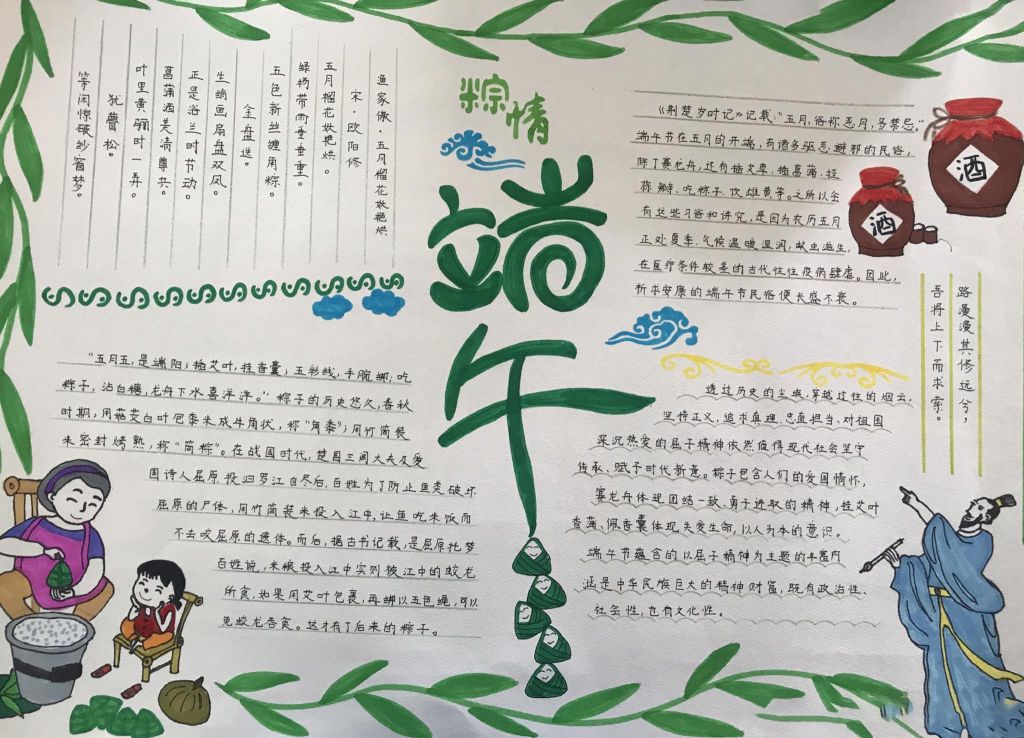 粽情
端午
渔家傲·五月榴花妖艳烘
宋·欧阳修
五月榴花妖艳烘。
绿杨带雨垂垂重。
五色新丝缠角粽。
金盘送。
生绡画扇盘双凤。
正是浴兰时节动。
菖蒲酒美清尊共。
叶里黄骊时一弄。
犹瞢松。
等闲惊破纱窗梦。
《荆楚岁时记》记载:“五月,俗称恶月,多禁忌。”
端午节在五月的开端,有诸多驱恶避邪的民俗,
除了赛龙舟,还有插艾草、插菖蒲、挂
蒜辫、吃粽子、饮雄黄等。之所以会
有这些习俗和讲究,是因为农历五月
正处夏季,气候温暖湿润,蚊虫滋生,
在医疗条件较差的古代往往疫病肆虐。因此,
祈求安康的端午节民俗便长盛不衰。
酒
酒
路漫漫其修远兮,
吾将上下而求索。
“五月五,是端阳;插艾叶,挂香囊;五彩线,手腕绑;吃
粽子,沾白糖,龙舟下水喜洋洋。”粽子的历史悠久,春秋
时期,用菰芝白叶包黍米成牛角状,称“角黍”;用竹筒装
米密封烤熟,称“筒粽”。在战国时代,楚国三闾大夫及爱
国诗人屈原投汨罗江自尽后,百姓为了防止鱼类破坏
屈原的尸体,用竹筒装米投入江中,让鱼吃米饭而
不去咬屈原的遗体。而后,据古书记载,是屈原托梦
百姓说,米粮投入江中实则被江中的蛟龙
所食,如果用艾叶包裹,再绑以五色绳,可以
免蛟龙吞食。这才有了后来的粽子。
透过历史的尘埃,穿越过往的烟云,
坚持正义、追求真理、忠直担当、对祖国
深沉热爱的屈子精神依然值得现代社会坚守
传承、赋予时代新意。粽子包含人们的爱国情怀,
赛龙舟体现团结一致、勇于进取的精神,挂艾叶
香蒲、佩香囊体现关爱生命,以人为本的意识。
端午节蕴含的以屈子精神为主题的丰富内
涵是中华民族巨大的精神财富,既有政治性、
社会性,也有文化性。